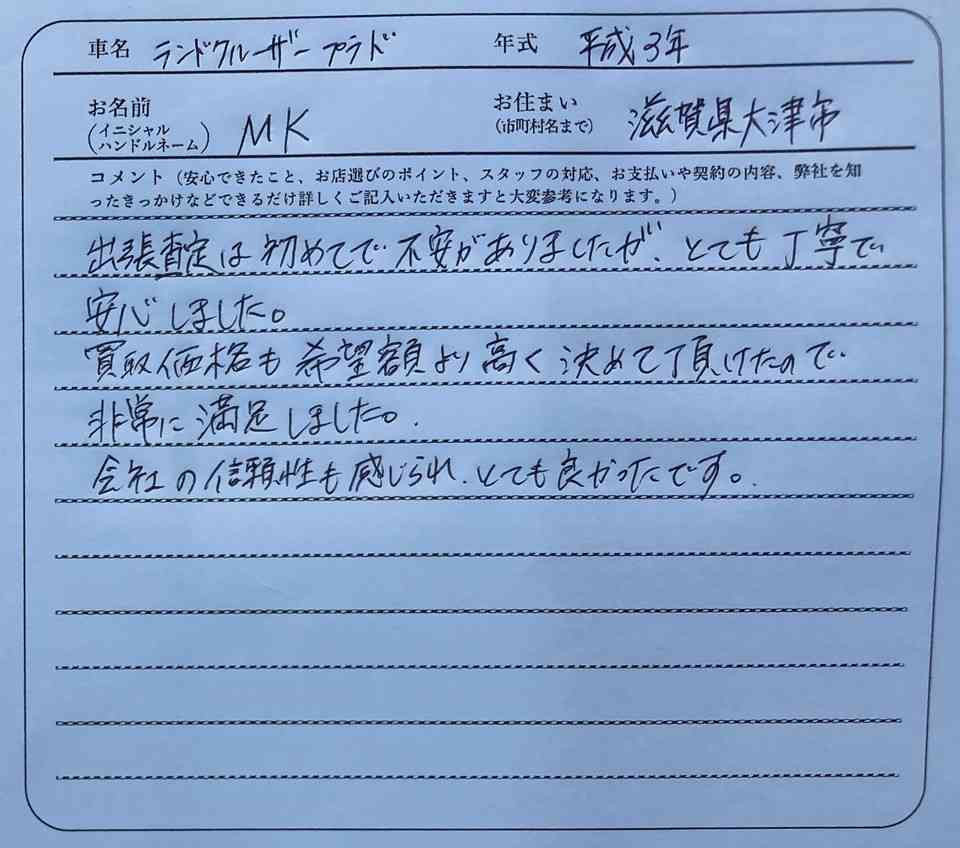 車名 ランドクルーザープラド 年式 平成3年
お名前 (イニシャル ハンドルネーム) MK お住まい (市町村名まで) 滋賀県大津市
コメント（安心できたこと、お店選びのポイント、スタッフの対応、お支払いや契約の内容、弊社を知
ったきっかけなどできるだけ詳しくご記入いただきますと大変参考になります。）
出張査定は初めてで不安がありましたが、とても丁寧で
安心しました。
買取価格も希望額より高く決めて頂けたので
非常に満足しました。
会社の信頼性も感じられ、とても良かったです。